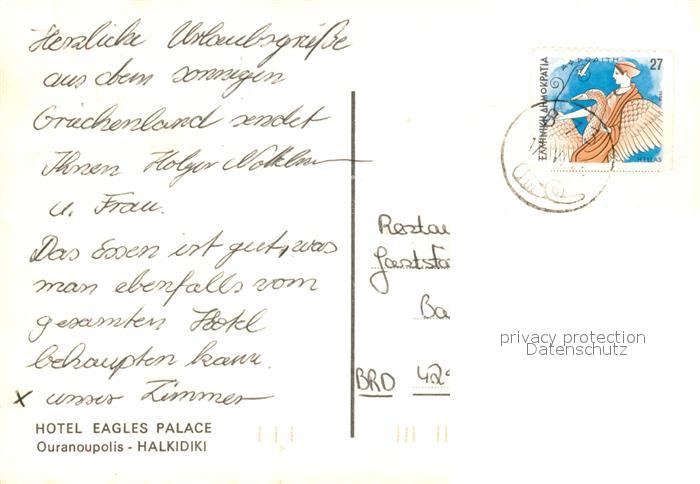 Herzliche Urlaubsgrüße
aus dem sonnigen
Griechenland sendet
Ihnen Holger
u. Frau.
Das Essen ist gut, was
man ebenfalls vom
gesamten Hotel
behaupten kann.
x unser Zimmer
HOTEL EAGLES PALACE
Ouranoupolis - HALKIDIKI
ΕΛΛΗΝΙΚΗ ΔΗΜΟΚΡΑΤΙΑ
ΑΦΡΟΔΙΤΗ
27
HELLAS
Restau
Gaststä
Ba
BRD 429
privacy protection
Datenschutz